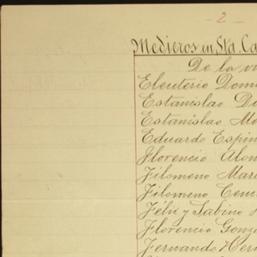 - 2 -
Medieros en Sta. Ca
De la v
Eleuterio Dom
Estanislao D
Estanislao Mo
Eduardo Espin
Florencio Alon
Filomeno Mar
Filomeno Cen
Félix y Sabino
Florencio Gonz
Fernando Her